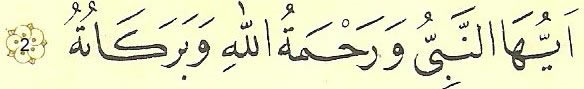 اَيُّهَا النَّبِيُّ وَرَحْمَةُ اللّٰهِ وَبَرَكَاتُهُ 2